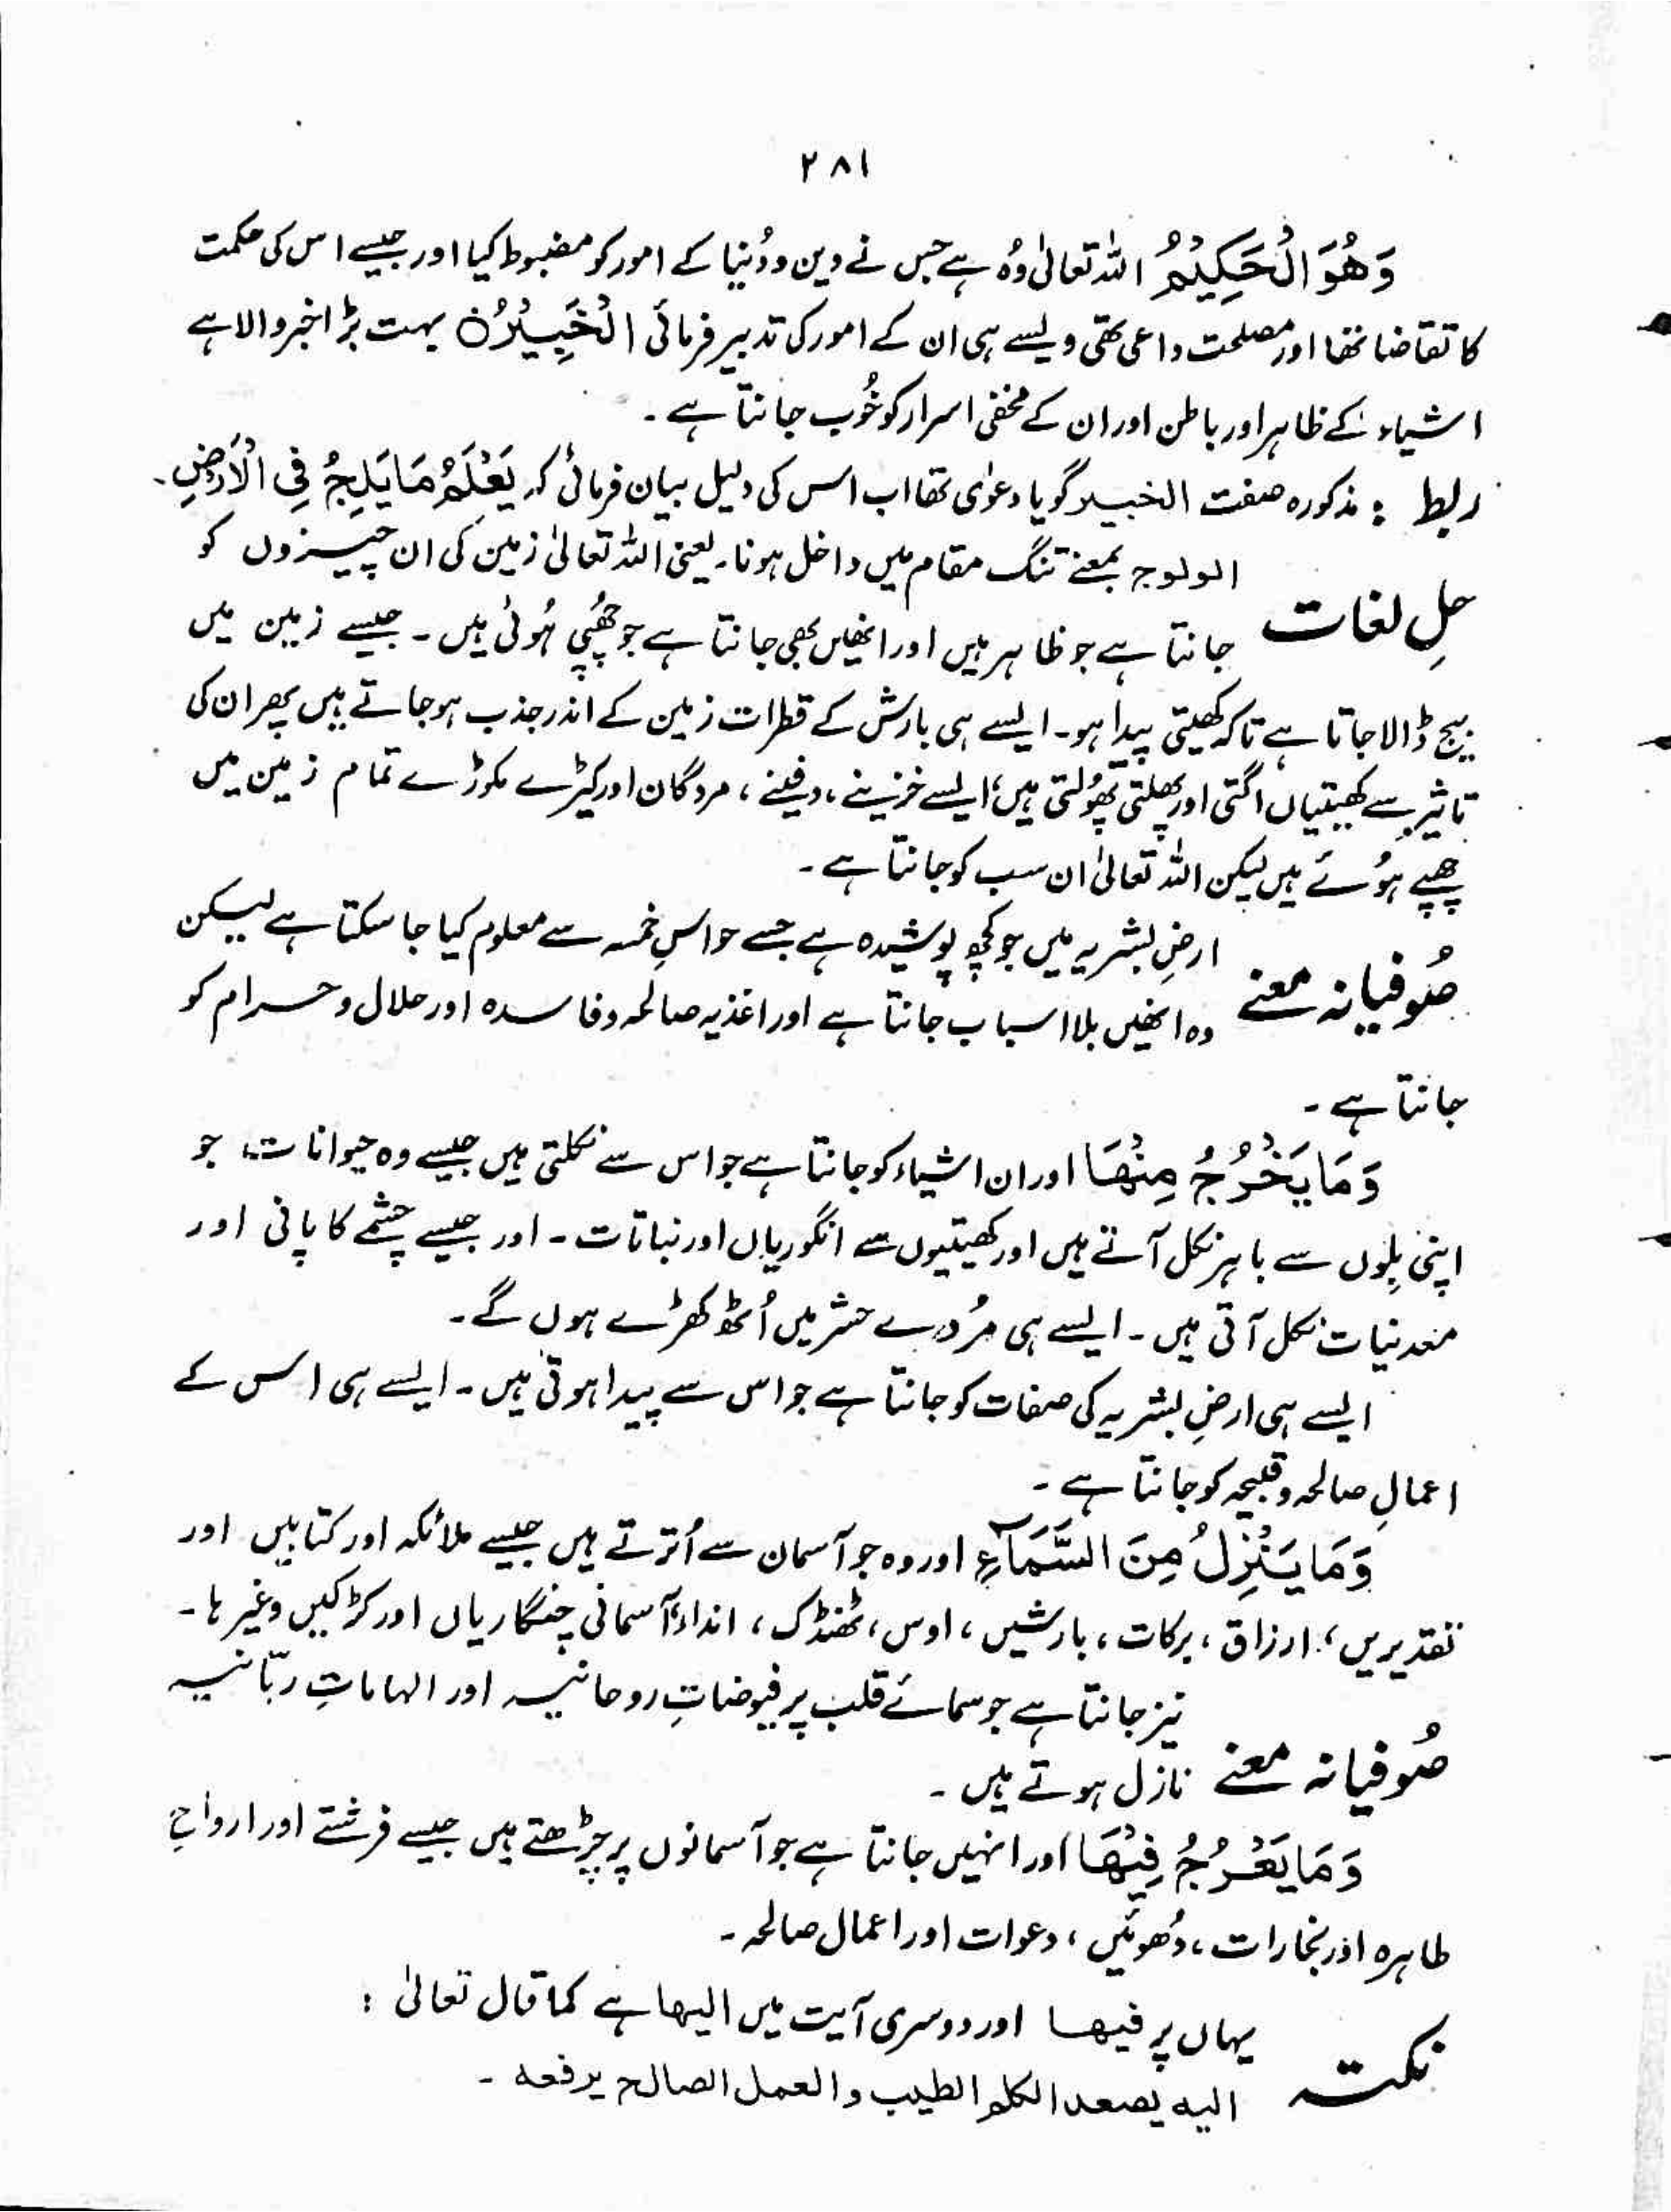 ۲۸۱
وَھُوَ الْحَکِیْمُ اللہ تعالیٰ وُہ ہے جس نے دین و دُنیا کے امور کو مضبوط کیا اور جیسے اس کی حکمت
کا تقاضا تھا اور مصلحت داعی تھی ویسے ہی ان کے امور کی تدبیر فرمائی الْخَبِیْرُ۝ بہت بڑا خبر والا ہے
اشیاء کے ظاہر اور باطن اور ان کے مخفی اسرار کو خُوب جانتا ہے ۔
ربط : مذکورہ صفت الخبیر گویا دعوٰی تھا اب اس کی دلیل بیان فرمائی کہ یَعْلَمُ مَا یَلِجُ فِی الْاَرْضِ۔
الولوج بمعنے تنگ مقام میں داخل ہونا۔ یعنی اللہ تعالیٰ زمین کی ان چیزوں کو
حلِ لغات جانتا ہے جو ظاہر ہیں اور انھیں بھی جانتا ہے جو چُھپی ہُوئی ہیں ۔ جیسے زمین میں
بیج ڈالا جاتا ہے تاکہ کھیتی پیدا ہو۔ ایسے ہی بارش کے قطرات زمین کے اندر جذب ہو جاتے ہیں پھر ان کی
تاثیر سے کھیتیاں اگتی اور پھلتی پھُولتی ہیں، ایسے خزینے، دفینے، مردگان اور کیڑے مکوڑے تمام زمین میں
چھپے ہُوئے ہیں لیکن اللہ تعالیٰ ان سب کو جانتا ہے ۔
ارضِ بشریہ میں جو کچھ پوشیدہ ہے جسے حواسِ خمسہ سے معلوم کیا جا سکتا ہے لیکن
صُوفیانہ معنے وہ انھیں بلا اسباب جانتا ہے اور اغذیہ صالحہ و فاسدہ اور حلال و حرام کو
جانتا ہے ۔
وَمَا یَخْرُجُ مِنْھَا اور ان اشیاء کو جانتا ہے جو اس سے نکلتی ہیں جیسے وہ حیوانات جو
اپنی بِلوں سے باہر نکل آتے ہیں اور کھیتیوں سے انگوریاں اور نباتات ۔ اور جیسے چشمے کا پانی اور
معدنیات نکل آتی ہیں ۔ ایسے ہی مُردے حشر میں اُٹھ کھڑے ہوں گے ۔
ایسے ہی ارضِ بشریہ کی صفات کو جانتا ہے جو اس سے پیدا ہوتی ہیں ۔ ایسے ہی اس کے
اعمالِ صالحہ و قبیحہ کو جانتا ہے ۔
وَمَا یَنْزِلُ مِنَ السَّمَآءِ اور وہ جو آسمان سے اُترتے ہیں جیسے ملائکہ اور کتابیں اور
تقدیریں، ارزاق، برکات، بارشیں، اوس، ٹھنڈک، انداء، آسمانی چنگاریاں اور کڑکیں وغیرہا ۔
نیز جانتا ہے جو سمائے قلب پر فیوضاتِ روحانیہ اور الہاماتِ ربّانیہ
صُوفیانہ معنے نازل ہوتے ہیں ۔
وَمَا یَعْرُجُ فِیْھَا اور انہیں جانتا ہے جو آسمانوں پر چڑھتے ہیں جیسے فرشتے اور ارواحِ
طاہرہ اور بخارات، دُھوئیں، دعوات اور اعمال صالحہ ۔
یہاں پر فیھا اور دوسری آیت میں الیھا ہے کما قال تعالیٰ :
نکتہ الیه یصعد الکلم الطیب والعمل الصالح یرفعه ۔